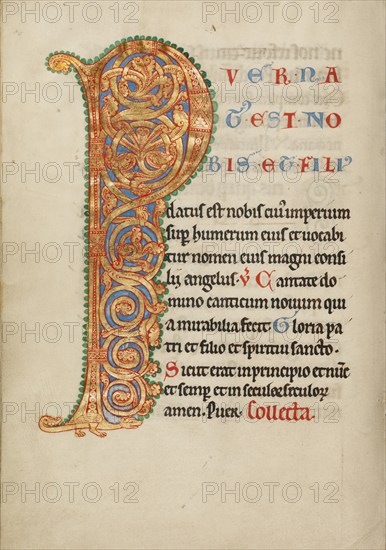 P VER·NA
T·EST·NO
BIS·ET·FILIꝰ
datus est nobis cuiꝰ imperium
sup̄ humerum eius et uocabi
tur nomen eius magni consi
lii angelus. V̄ Cantate do
mino canticum nouum qui
a mirabilia fecit. Gloria pa
tri et filio et spiritui sancto.
Sicut erat in principio et nūc
et semp̄ et in seculoꝝ seculoꝝ
amen. Puer. Collecta
PHOTO 12